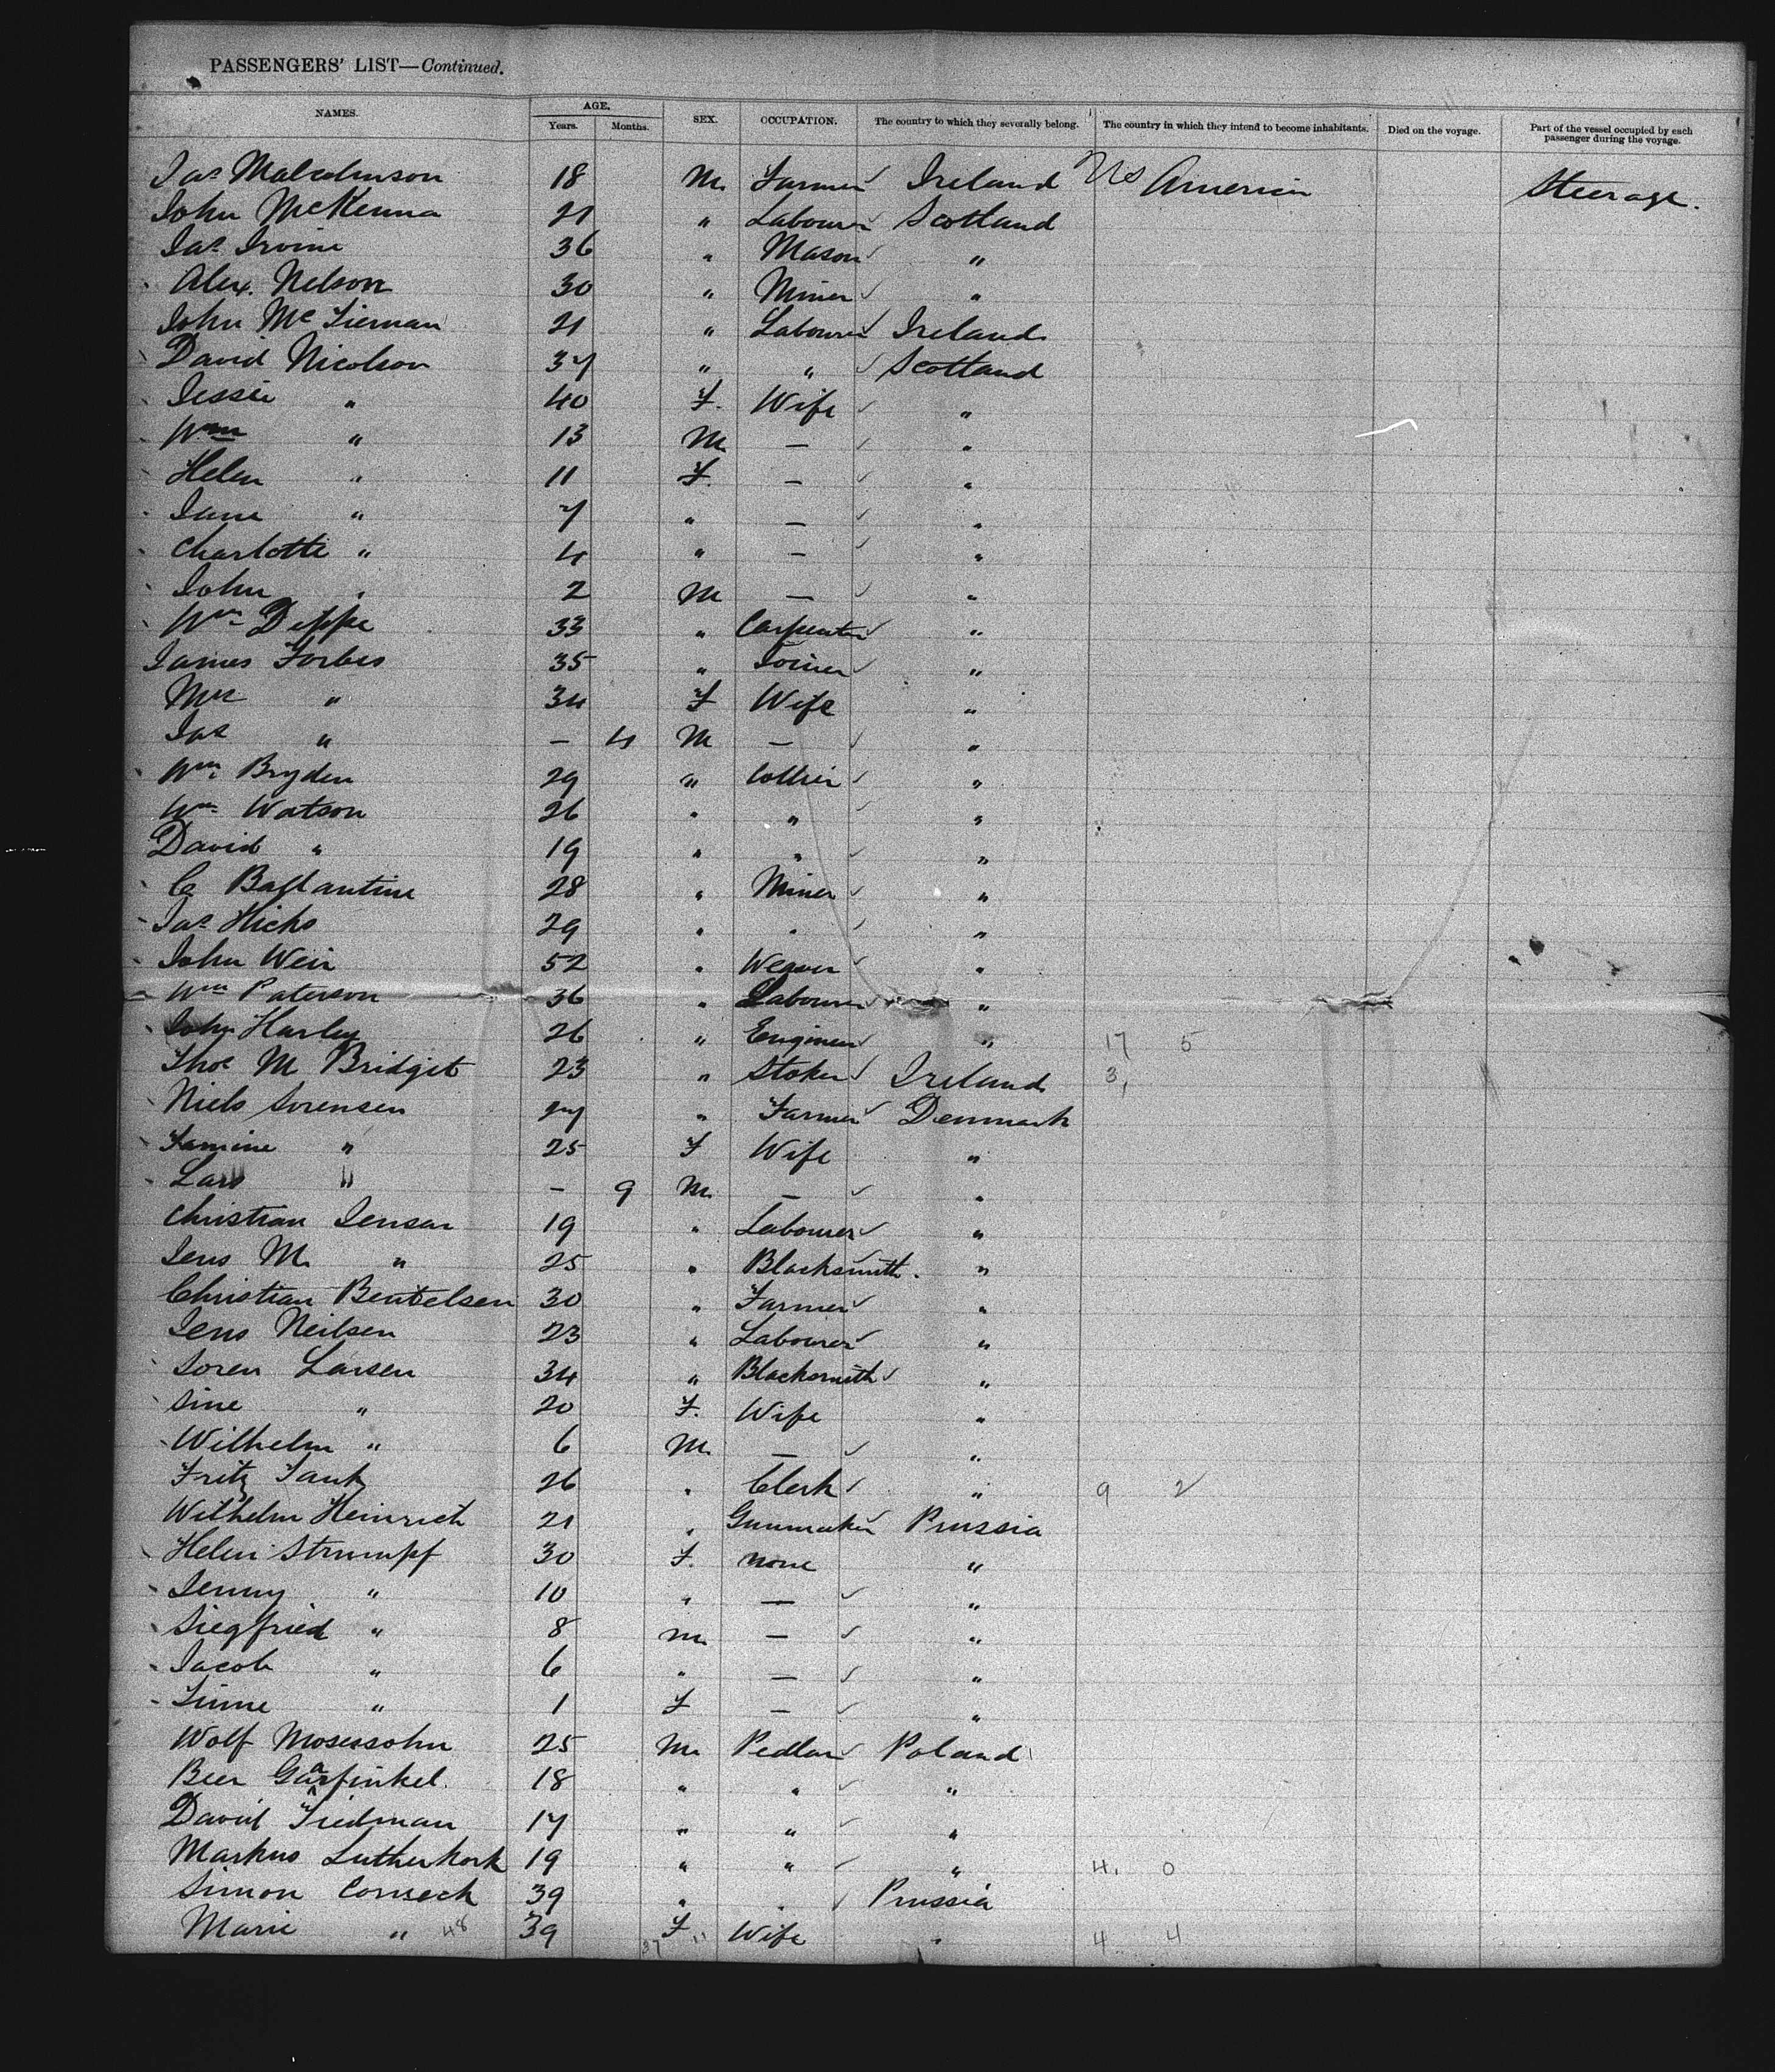 PASSENGERS' LIST—Continued.
NAMES. AGE. Years. Months. SEX. OCCUPATION. The country to which they severally belong. The country in which they intend to become inhabitants. Died on the voyage. Part of the vessel occupied by each passenger during the voyage.
Jas Malcolmson 18 M. Farmer Ireland US America Steerage.
John McKenna 21 " Labourer Scotland
Jas Irvine 36 " Mason "
Alex. Nelson 30 " Miner "
John McTiernan 21 " Labourer Ireland
David Nicolson 37 " " Scotland
Jessie " 40 F. Wife "
Wm " 13 M. — "
Helen " 11 F. — "
Jane " 7 " — "
Charlotte " 4 " — "
John " 2 M — "
Wm Deppe 33 " Carpenter "
James Forbes 35 " Joiner "
Mrs " 34 F Wife "
Jas " — 4 M — "
Wm Bryden 29 " Collier "
Wm Watson 26 " " "
David " 19 " " "
C Ballantine 28 " Miner "
Jas Hicks 29 " " "
John Weir 52 " Weaver "
Wm Paterson 36 " Labourer "
John Harley 26 " Engineer " 17 5
Thos M Bridget 23 " Stoker Ireland 3,
Niels Sorensen 27 " Farmer Denmark
" 25 F Wife "
Lars " — 9 M. — "
Christian Jensen 19 " Labourer "
Jens M. " 25 " Blacksmith. "
Christian Bentelsen 30 " Farmer "
Jens Neilsen 23 " Labourer "
Soren Larsen 34 " Blacksmith "
Sine " 20 F. Wife "
Wilhelm " 6 M. — "
Fritz 26 " Clerk " 9 2
Wilhelm Heinrich 21 " Gunmaker Prussia
Helen Strumpf 30 F. none "
Jenny " 10 " — "
Siegfried " 8 M. — "
Jacob " 6 " — "
" 1 F — "
Wolf Mosessohn 25 M. Pedlar Poland
Beer Garfinkel. 18 " " "
David 17 " " "
Markus Lutherkork 19 " " " 4. 0
Simon Corneck 39 " " Prussia
Marie " 48 39 37 F 11 Wife " 4 4